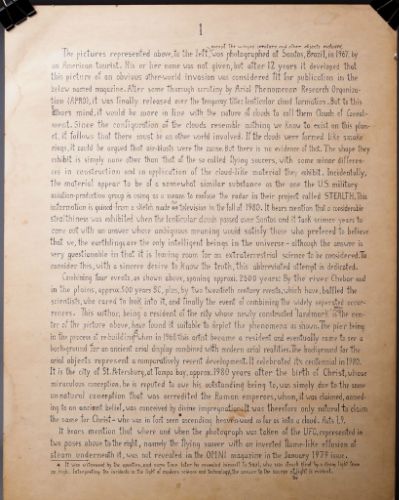 1
except the winged creature and other objects pictured.
The pictures represented above, to the left, was photographed at Santos, Brazil, in 1967, by
an American tourist. His or her name was not given, but after 12 years it developed that
this picture of an obvious other-world invasion was considered fit for publication in the
below named magazine. After some thorough scrutiny by Arial Phenomenon Research Organiza-
tion (APRO), it was finally released over the temporay title: lenticular cloud formation. But to this
authors mind, it would be more in line with the nature of clouds to call them Clouds of Conceal-
ment. Since the configuration of the clouds resemble nothing we know to exist on this plan-
et, it follows that there must to an other world involved. If the clouds were formed like smoke
rings, it could be argued that air-blasts were the cause. But there is no evidence of that. The shape they
exhibit is simply none other than that of the so called flying saucers, with some minor differen-
ces in construction and in application of the cloud-like material they exhibit. Incidentally,
the material appear to be of a somewhat similar substance as the one the U.S. military
aviation-production group is using as a means to confuse the radar in their project called STEALTH. This
information is gained from a sketch made on television in the fall of 1980. It bears mention that a considerable
stealthiness was exhibited when the lenticular clouds passed over Santos and it took science years to
come out with an answer whose ambiguous meaning would satisfy those who prefered to believe
that we, the earthlings are the only intelligent beings in the universe – although the answer is
very questionable in that it is leaving room for an extraterrestrial science to be considered. To
consider this, with a sincere desire to know the truth, this abbreviated attempt is dedicated.
Combining four events, as shown above, spaning approx. 2500 years: By the river Chebar and
in the plains, approx. 500 years BC, plus, by two twentieth century events, which have, baffled the
scientists, who cared to look into it, and finally the event of combining the widely seperated occur-
rences. This author, being a resident of the city whose newly constructed landmark is the cen-
ter of the picture above, have found it suitable to depict the phenomena as shown. The pier being
in the process of rebuilding when in 1968 this artist became a resident and eventually came to see a
background for an ancient arial display combined with modern arial realities. The background for the
arial objects represent a comparatively recent development. It celebrated its centennial in 1980.
It is the city of St. Petersburg, at Tampa bay, approx. 1980 years after the birth of Christ, whose
miraculous conception, he is reputed to owe his outstanding being to, was simply due to the same
unnatural conception that was accredited the Roman emperors, whom, it was claimed, accord-
ing to an ancient belief, was conceived by divine impregnation. It was therefore only natural to claim
the same for Christ – who was in fact seen ascending heavenward as far as into a cloud. Acts 1,9.
It bears mention that where and when the photograph was taken of the UFO, represented in
two poses above to the right, namely the flying saucer with an inverted flame-like effusion of
steam underneath it, was not revealed in the OMNI magazine in the January 1979 issue.
* It was witnessed by the question, and some time later he revealed himself to Saul, who was struck blind by a strong light from
on high. Interpreting the incidents in the light of modern science and technology, the answer to the source of light is evident.